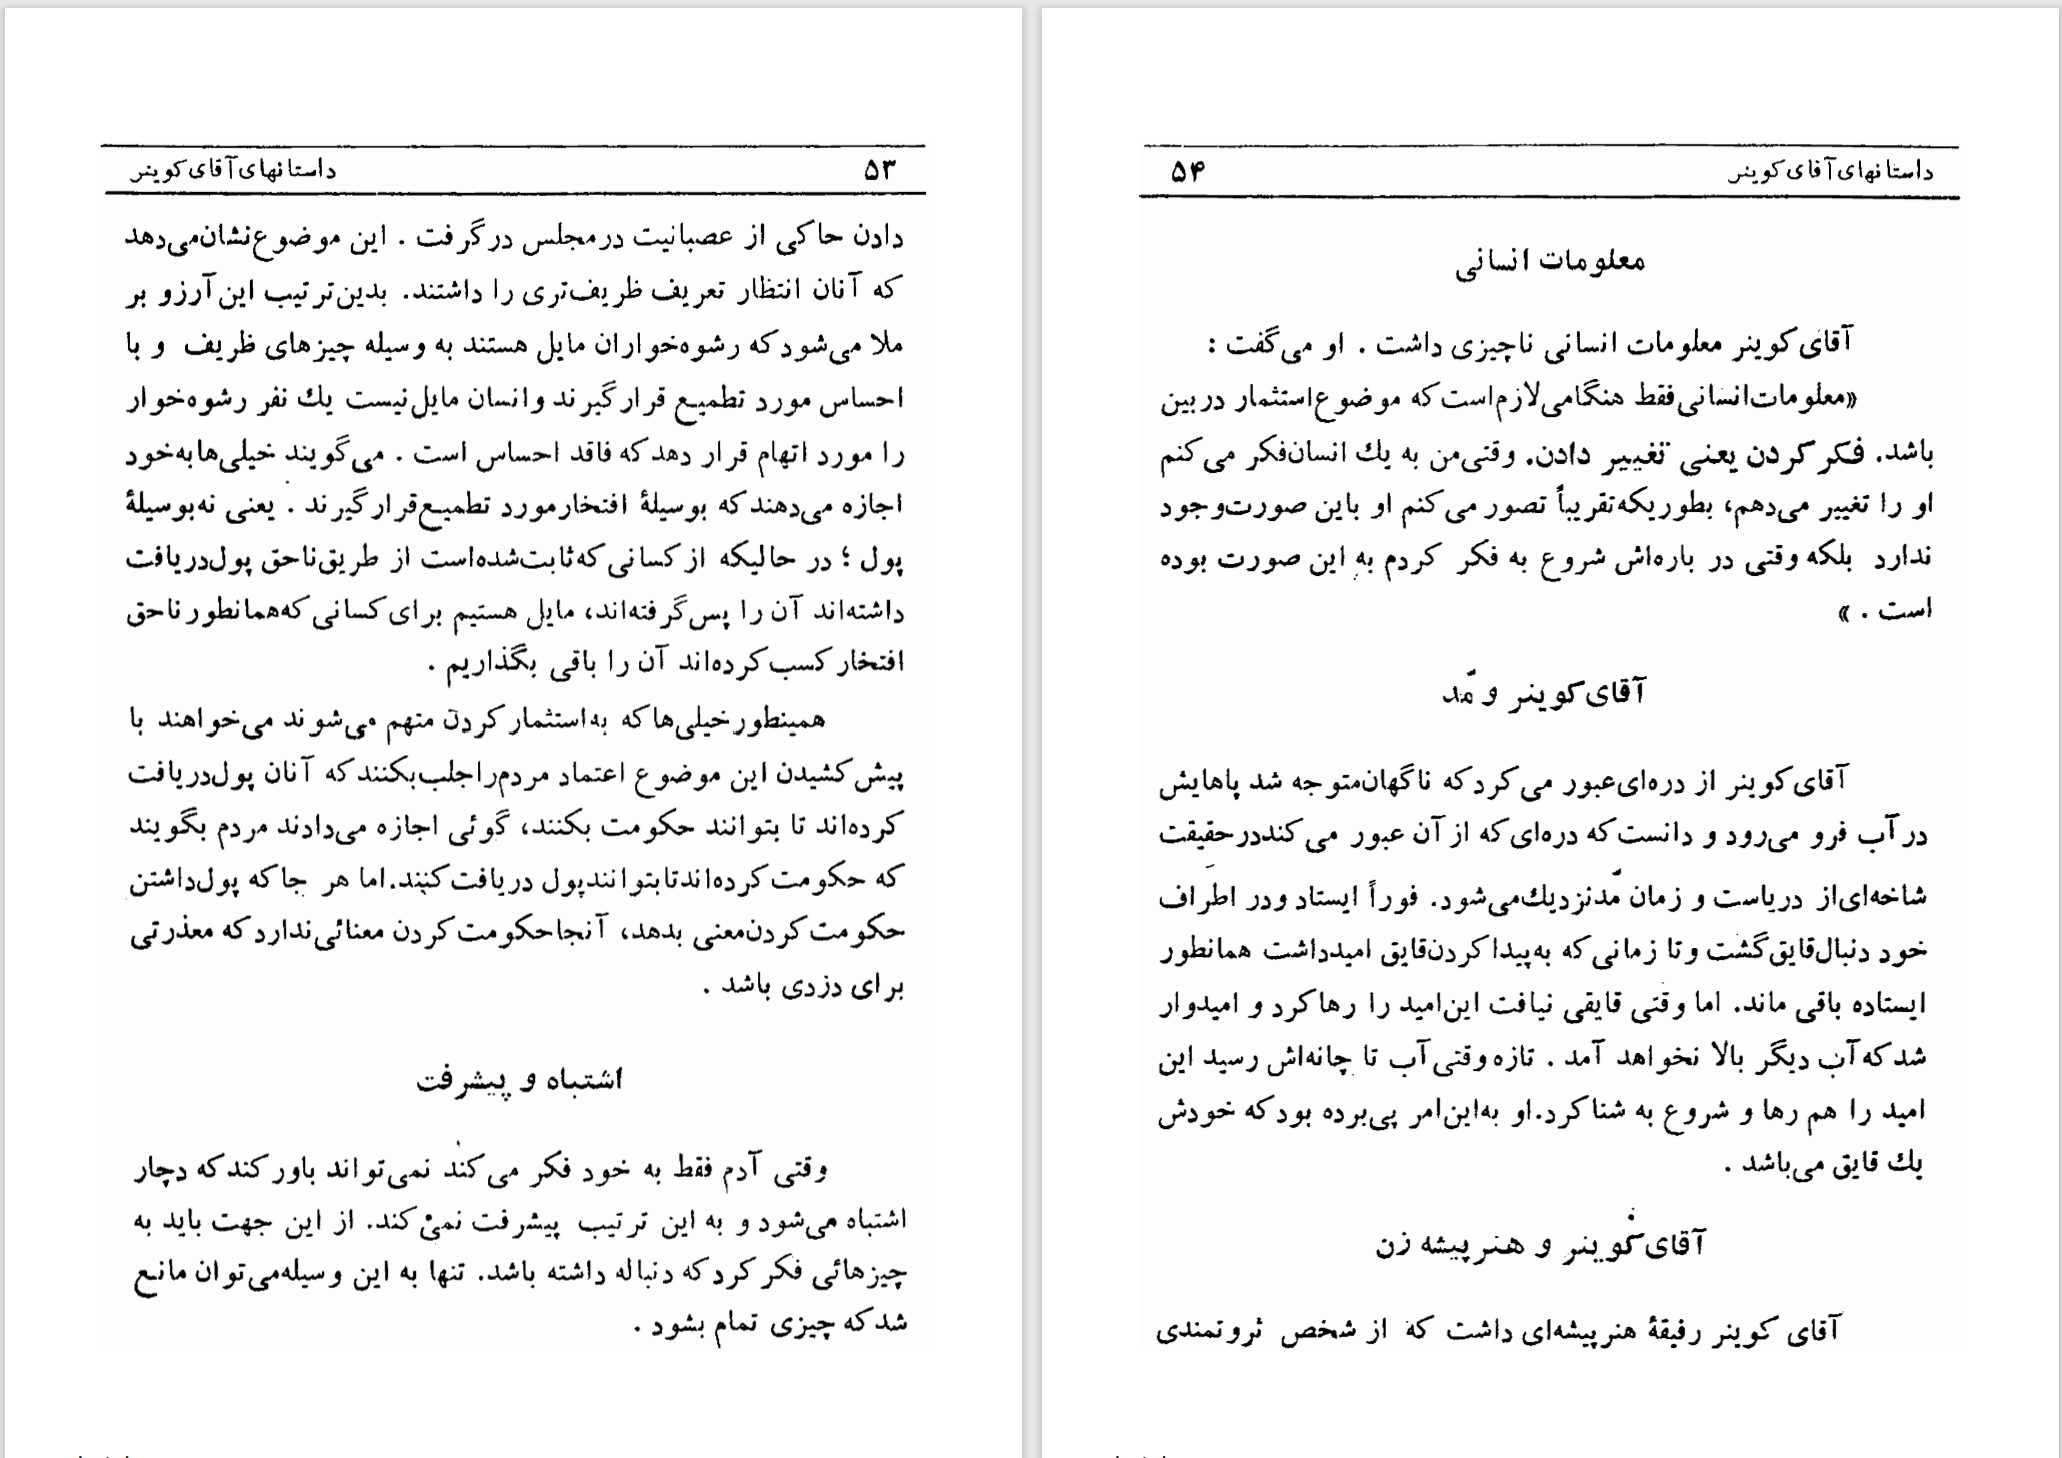 ۵۳ داستانهای آقای کوینر
دادن حاکی از عصبانیت در مجلس در گرفت . این موضوع نشان می‌دهد
که آنان انتظار تعریف ظریف‌تری را داشتند. بدین ترتیب این آرزو بر
ملا می‌شود که رشوه‌خواران مایل هستند به وسیله چیزهای ظریف و با
احساس مورد تطمیع قرار گیرند و انسان مایل نیست یك نفر رشوه‌خوار
را مورد اتهام قرار دهد که فاقد احساس است . می‌گویند خیلی‌ها به خود
اجازه می‌دهند که بوسیلهٔ افتخار مورد تطمیع قرار گیرند . یعنی نه بوسیلهٔ
پول ؛ در حالیکه از کسانی که ثابت شده است از طریق ناحق پول دریافت
داشته‌اند آن را پس گرفته‌اند، مایل هستیم برای کسانی که همانطور ناحق
افتخار کسب کرده‌اند آن را باقی بگذاریم .
همینطور خیلی‌ها که به استثمار کردن متهم می‌شوند می‌خواهند با
پیش کشیدن این موضوع اعتماد مردم را جلب بکنند که آنان پول دریافت
کرده‌اند تا بتوانند حکومت بکنند، گوئی اجازه می‌دادند مردم بگویند
که حکومت کرده‌اند تا بتوانند پول دریافت کنند. اما هر جا که پول داشتن
حکومت کردن معنی بدهد، آنجا حکومت کردن معنائی ندارد که معذرتی
برای دزدی باشد .
اشتباه و پیشرفت
وقتی آدم فقط به خود فکر می‌کند نمی‌تواند باور کند که دچار
اشتباه می‌شود و به این ترتیب پیشرفت نمی‌کند. از این جهت باید به
چیزهائی فکر کرد که دنباله داشته باشد. تنها به این وسیله می‌توان مانع
شد که چیزی تمام بشود .
داستانهای آقای کوینر ۵۴
معلومات انسانی
آقای کوینر معلومات انسانی ناچیزی داشت . او می‌گفت :
«معلومات انسانی فقط هنگامی لازم است که موضوع استثمار در بین
باشد. فکر کردن یعنی تغییر دادن. وقتی من به یك انسان فکر می‌کنم
او را تغییر می‌دهم، بطوریکه تقریباً تصور می‌کنم او باین صورت وجود
ندارد بلکه وقتی در باره‌اش شروع به فکر کردم به این صورت بوده
است . »
آقای کوینر و مّد
آقای کوینر از دره‌ای عبور می‌کرد که ناگهان متوجه شد پاهایش
در آب فرو می‌رود و دانست که دره‌ای که از آن عبور می‌کند در حقیقت
شاخه‌ای از دریاست و زمان مّد نزدیك می‌شود. فوراً ایستاد و در اطراف
خود دنبال قایق گشت و تا زمانی که به پیدا کردن قایق امید داشت همانطور
ایستاده باقی ماند. اما وقتی قایقی نیافت این امید را رها کرد و امیدوار
شد که آب دیگر بالا نخواهد آمد . تازه وقتی آب تا چانه‌اش رسید این
امید را هم رها و شروع به شنا کرد. او به این امر پی برده بود که خودش
یك قایق می‌باشد .
آقای کوینر و هنر پیشه زن
آقای کوینر رفیقهٔ هنر پیشه‌ای داشت که از شخص ثروتمندی